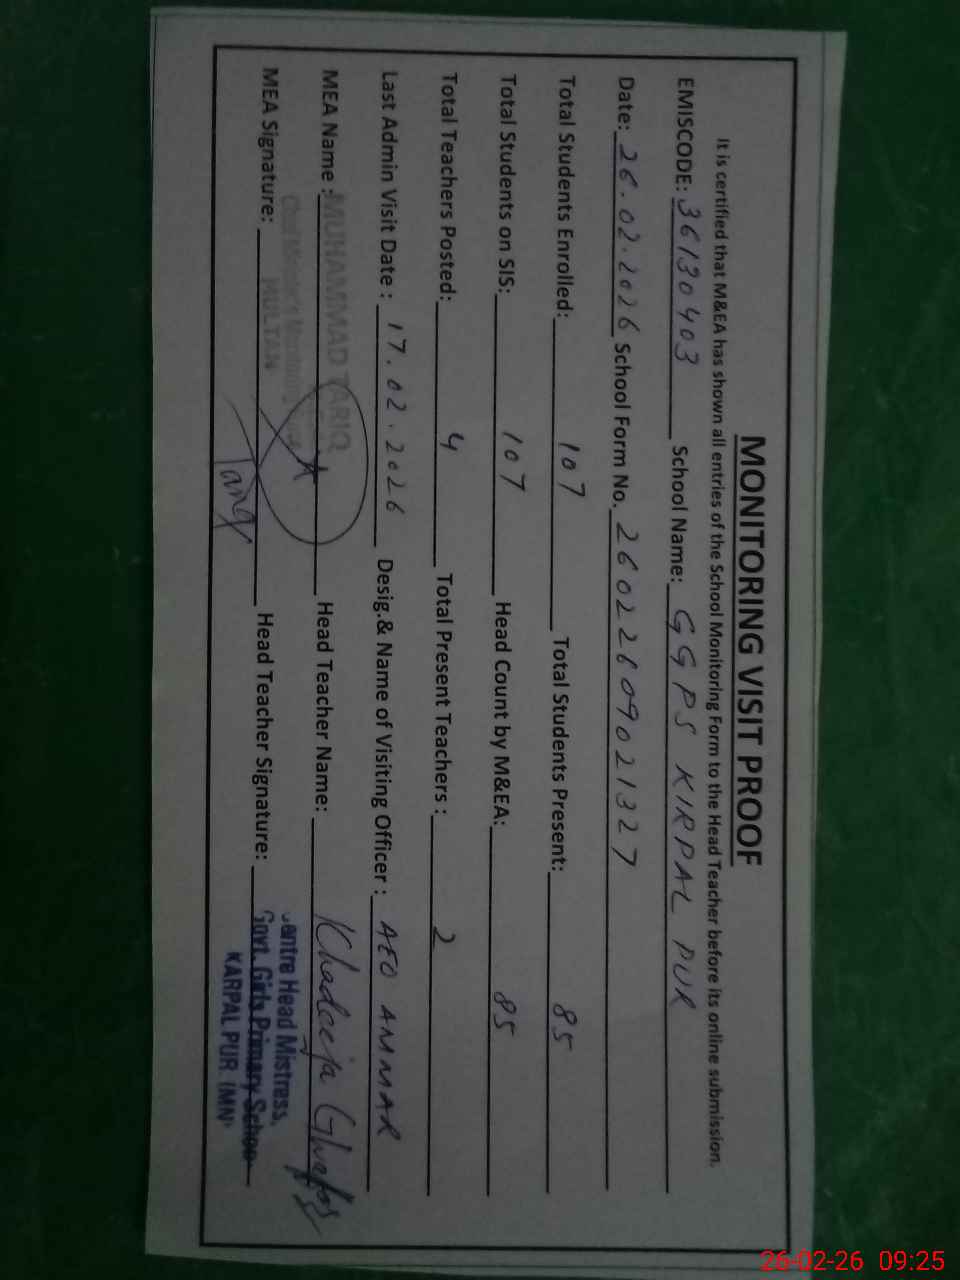 MONITORING VISIT PROOF
It is certified that M&EA has shown all entries of the School Monitoring Form to the Head Teacher before its online submission.
EMISCODE: 36130403 School Name: GGPS KIRPAL PUR
Date: 26.02.2026 School Form No. 26022609021327
Total Students Enrolled: 107 Total Students Present: 85
Total Students on SIS: 107 Head Count by M&EA: 85
Total Teachers Posted: 4 Total Present Teachers : 2
Last Admin Visit Date : 17.02.2026 Desig.& Name of Visiting Officer : AEO AMMAR
MEA Name : MUHAMMAD TARIQ Head Teacher Name: Khadeeja
MULTAN
MEA Signature: Head Teacher Signature:
Centre Head Mistress,
Govt. Girls Primary School
KARPAL PUR (MN)
26-02-26 09:25